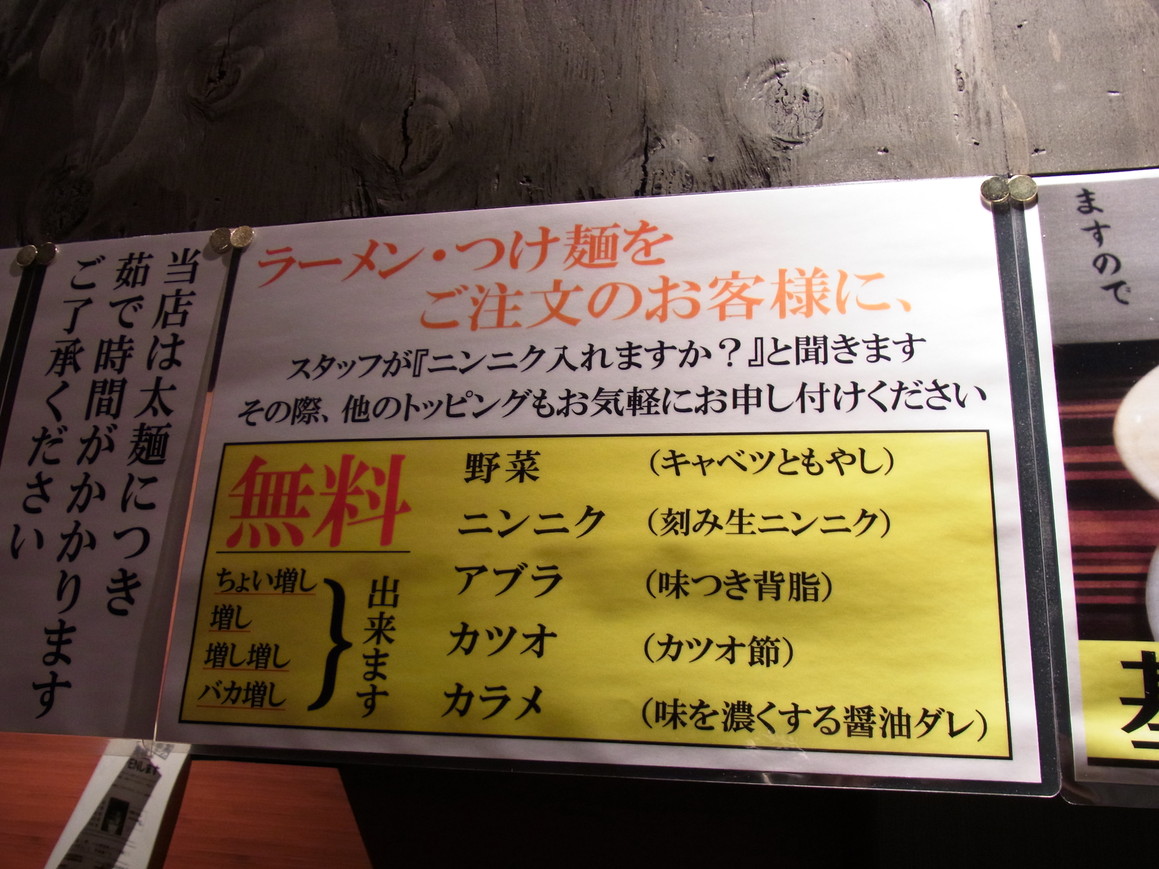 当店は太麺につき
茹で時間がかかります
ご了承ください
ラーメン・つけ麺を
ご注文のお客様に、
スタッフが『ニンニク入れますか？』と聞きます
その際、他のトッピングもお気軽にお申し付けください
無料
ちょい増し
増し
増し増し
バカ増し
出来ます
野菜 （キャベツともやし）
ニンニク （刻み生ニンニク）
アブラ （味つき背脂）
カツオ （カツオ節）
カラメ （味を濃くする醤油ダレ）
ますので